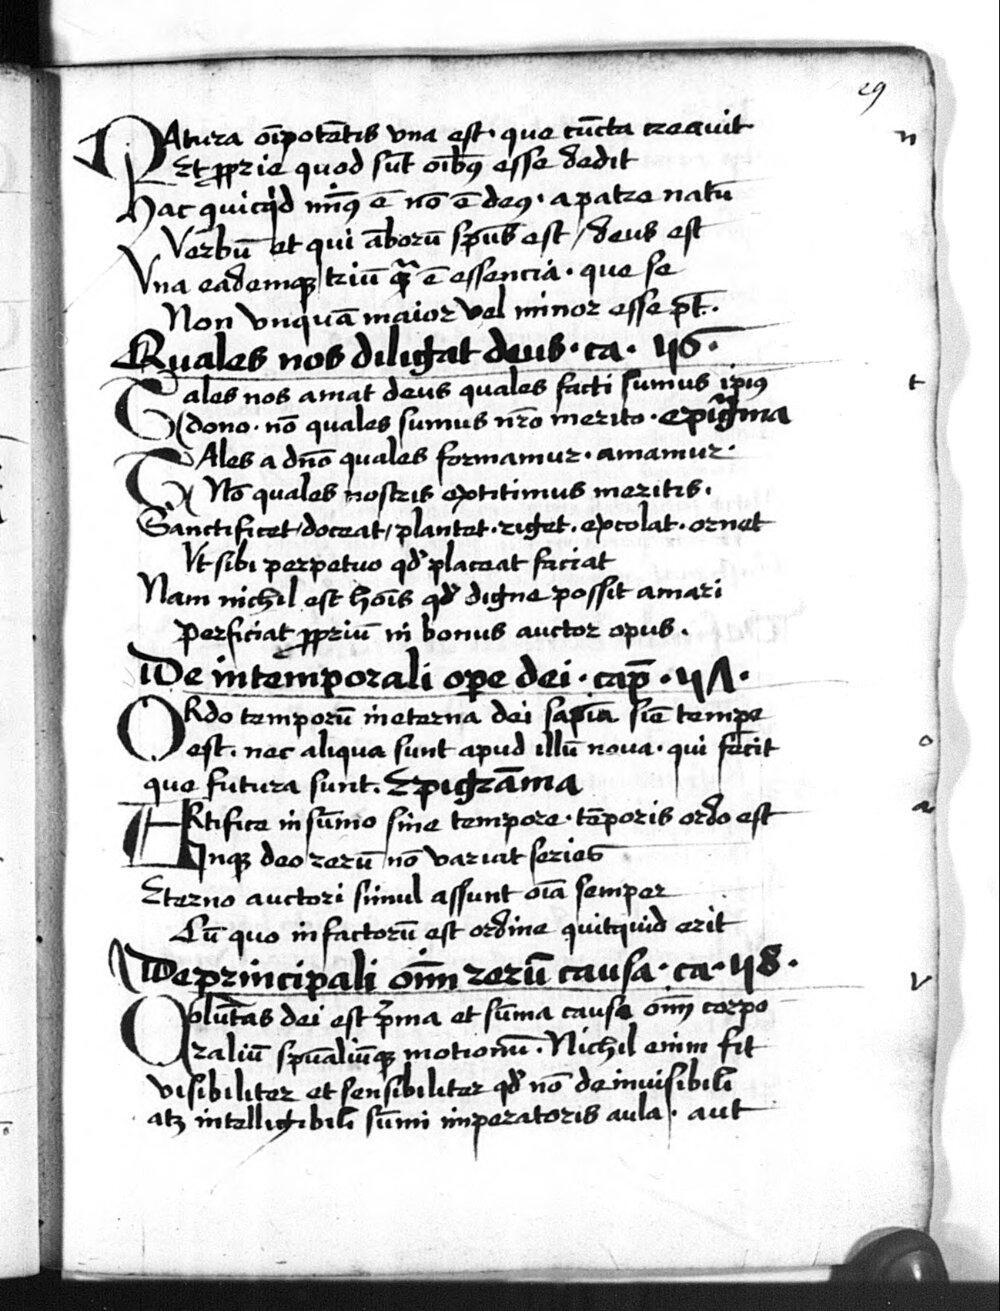 29
NAtura oīpotētis vna est · que cūcta creauit n
Et ꝓprie quod sūt oībꝰ esse dedit
Hac quicq̇d minꝰ ē nō ē deꝰ · a patre natū
Verbū et qui amborū sp̄us est / deus est
Vna eademqꝫ triū q̄ ē essencia · que se
Non vnquā maior vel minor esse pt̄ ·
Quales nos diligat deus · ca · 46 ·
Tales nos amat deus quales facti sumus ip̄iꝰ t
dono · nō quales sumus nr̄o merito · epigr̄ma
TAles a dn̄o quales formamur · amamur ·
Nō quales nostris extitimus meritis ·
Sanctificet / doceat / plantet · riget · excolat · ornet
Vt sibi perpetuo qd̓ placeat faciat
Nam nichil est hoīs qd̓ digne possit amari
Perficiat ꝓpriū ni bonus auctor opus ·
De intemporali ope dei · cap̄ · 47 ·
ORdo temporū in eterna dei sapīa sīe tempe
est · nec aliqua sunt apud illū noua · qui fecit o
que futura sunt · Epigrāma
ARtifice in sūmo sine tempore · tēporis ordo est a
Inqꝫ deo rerū nō variat series
Eterno auctori simul assunt oīa semper
Cū quo in factorū est ordine quitquid erit
De principali oīm rerū causa · ca · 48 ·
Uolūtas dei est p̄ma et sūma causa oīm corpo v
raliū sp̄ualiūqꝫ motionū · Nichil enim fit
visibiliter et sensibiliter qd̓ nō de inuisibili
atqꝫ intelligibili sūmi imperatoris aula · aut